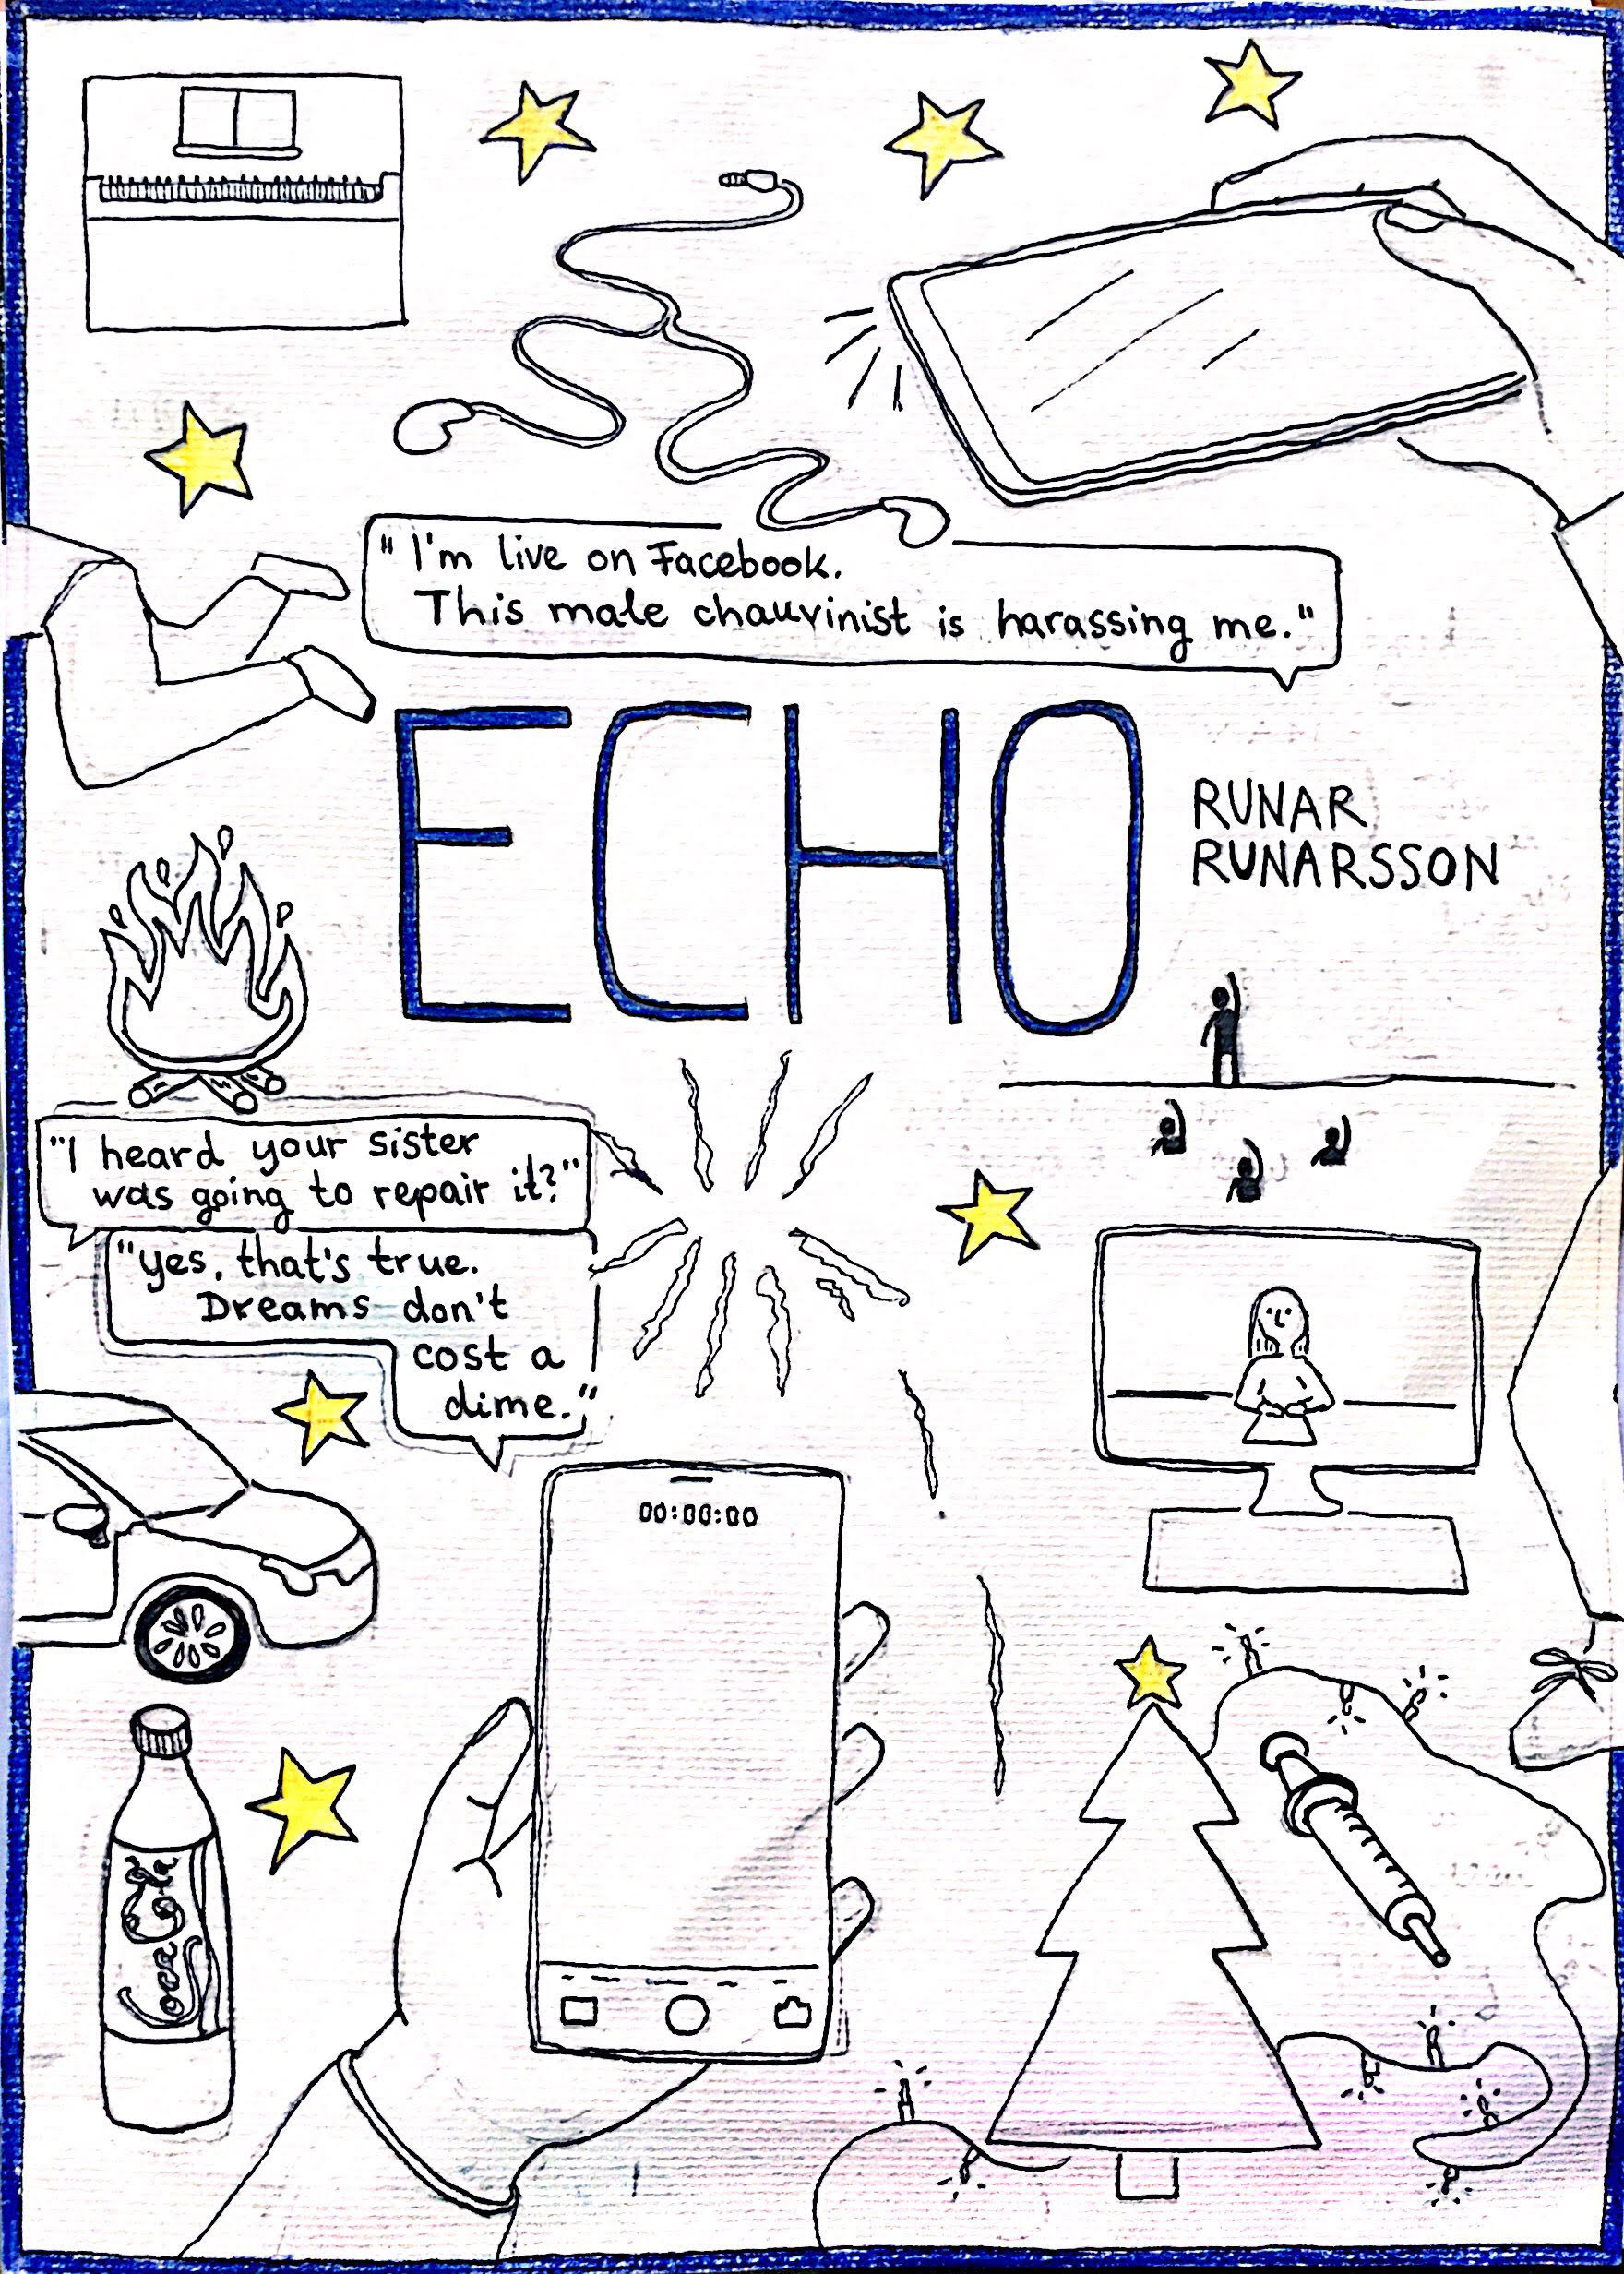 "I'm live on Facebook.
This male chauvinist is harassing me."
ECHO
RUNAR
RUNARSSON
"I heard your sister
was going to repair it?"
"Yes, that's true.
Dreams don't
cost a
dime."
00:00:00
Coca Cola